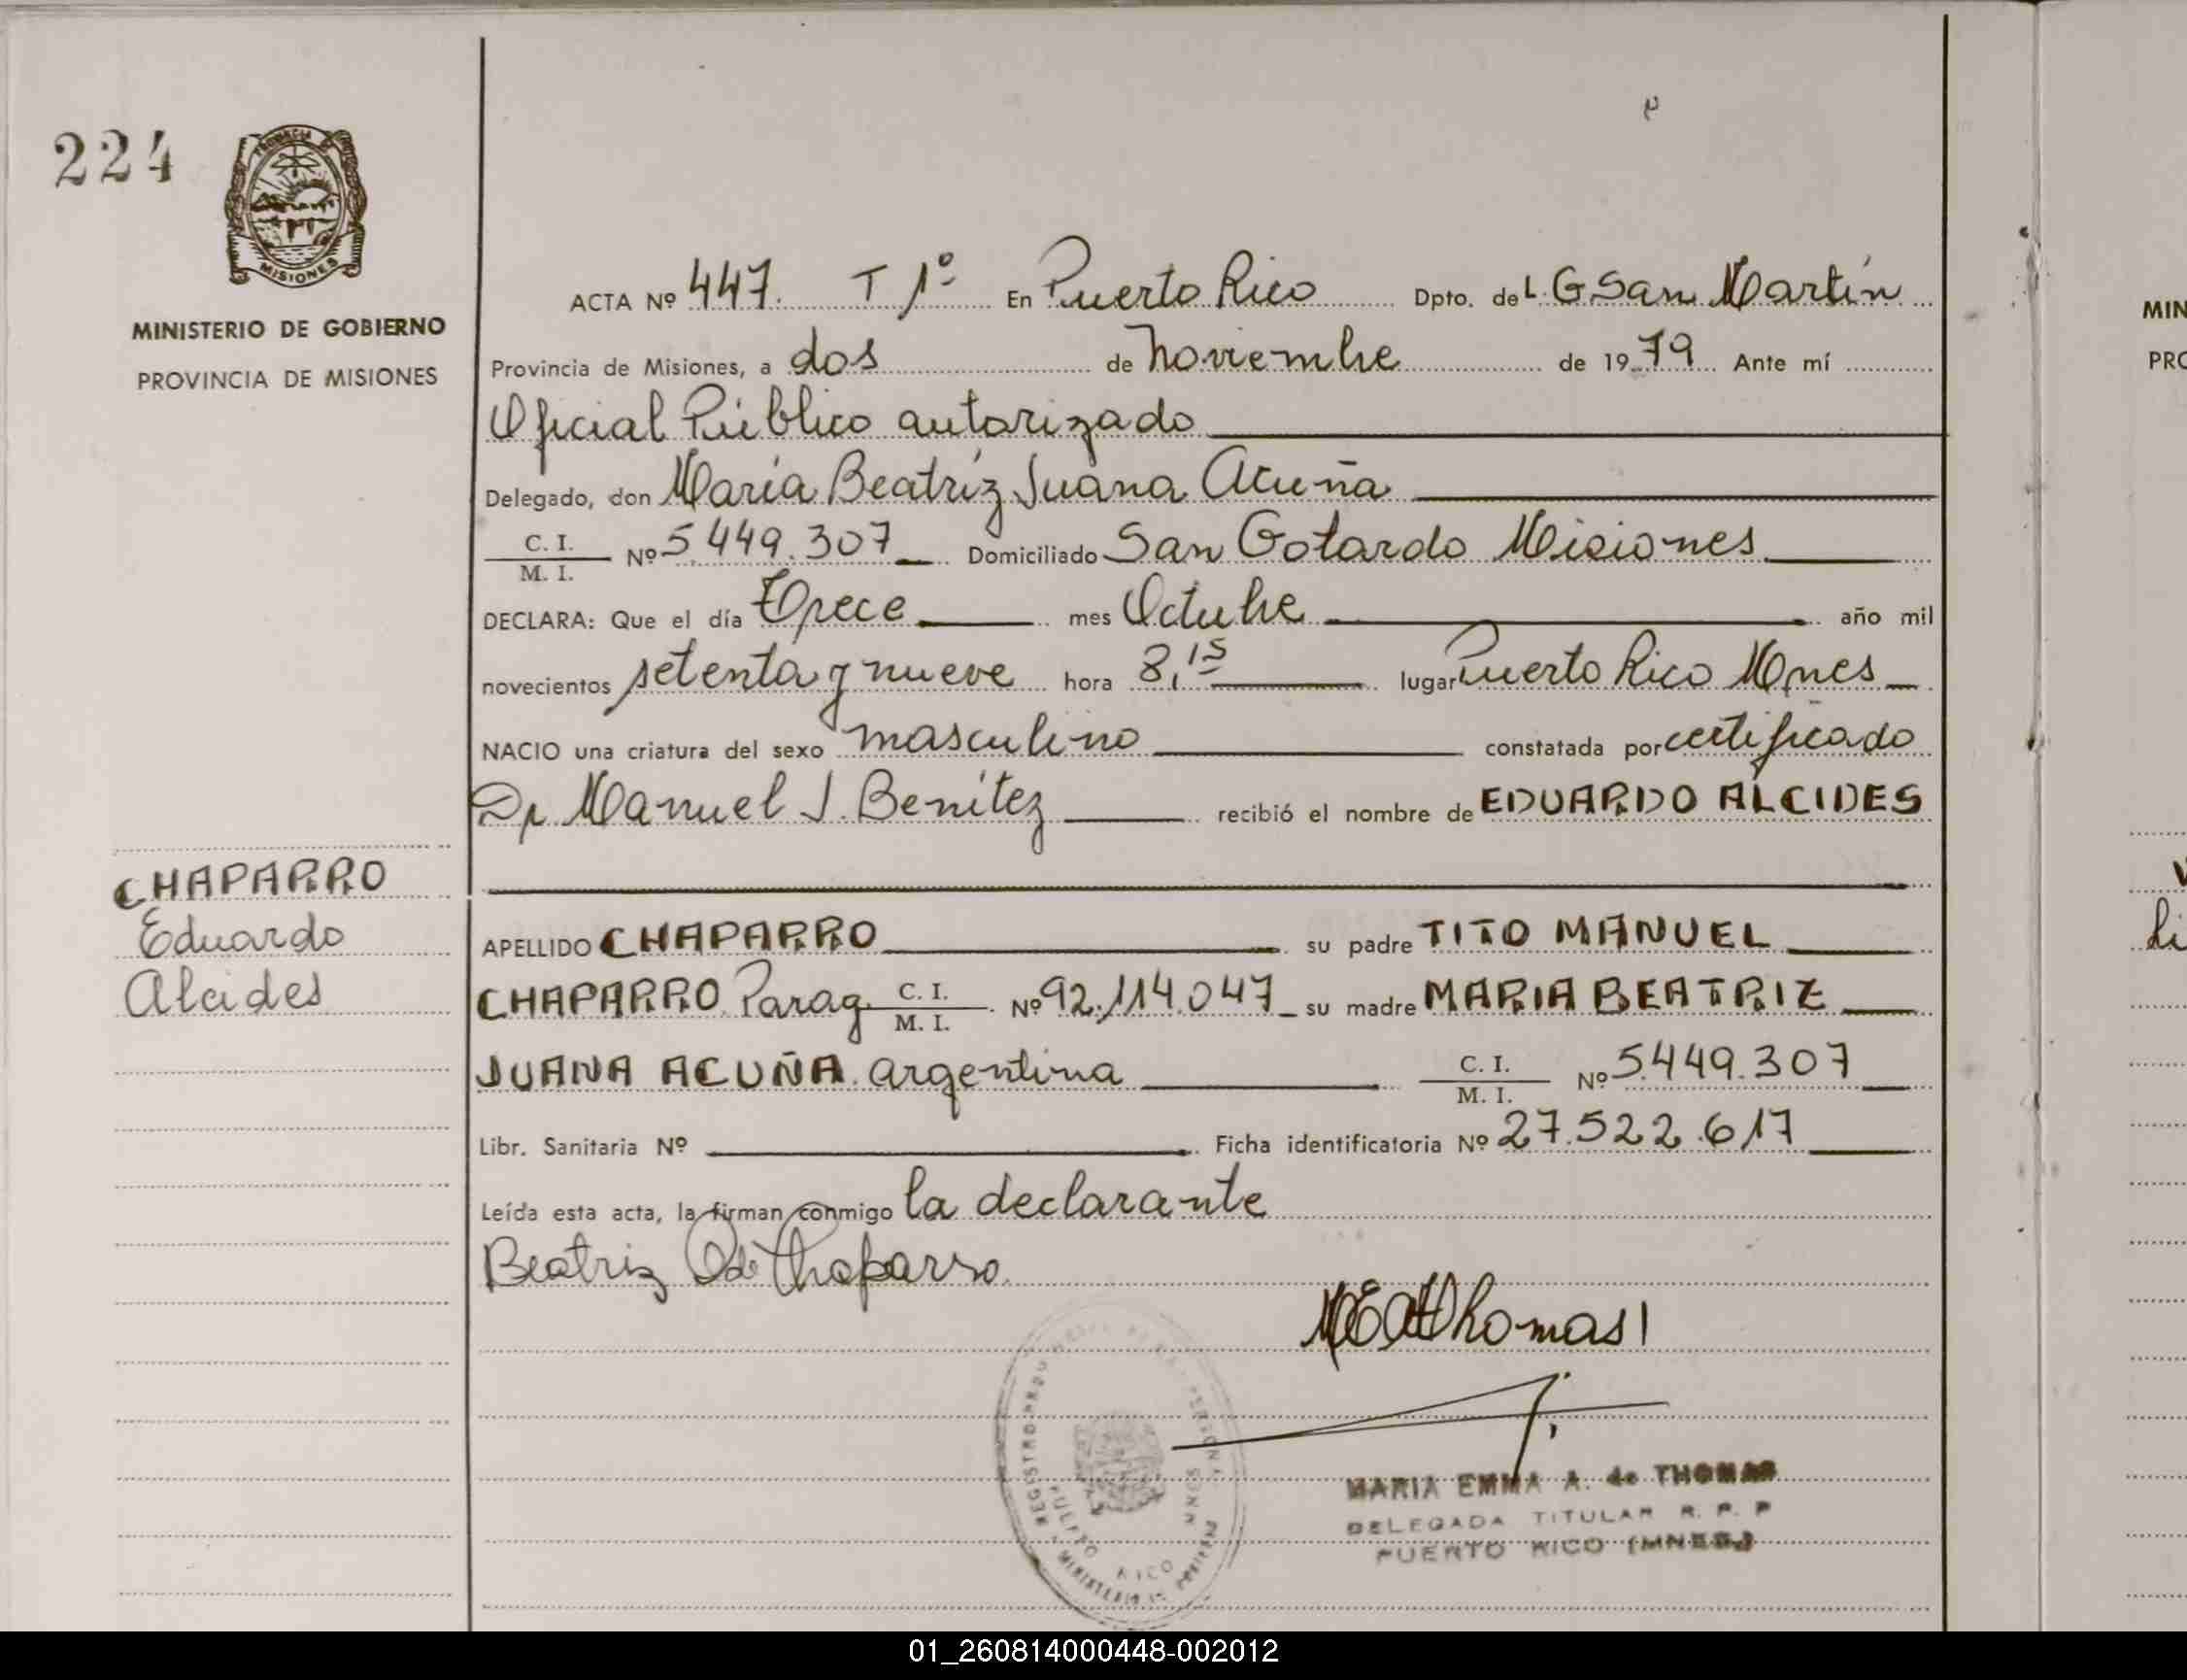 224
PROVINCIA
MISIONES
MINISTERIO DE GOBIERNO
PROVINCIA DE MISIONES
CHAPARRO
Eduardo
Alcides
ACTA Nº 447. T 1º En Puerto Rico Dpto. de L. G San Martín
Provincia de Misiones, a dos de noviembre de 1979 Ante mí
Oficial Público autorizado
Delegado, don María Beatríz Juana Acuña
C. I.
M. I. Nº 5.449.307 Domiciliado San Gotardo Misiones
DECLARA: Que el día Trece mes Octubre año mil
novecientos setenta y nueve hora 8,15 lugar Puerto Rico Mnes
NACIO una criatura del sexo masculino constatada por certificado
Dr Manuel J. Benítez recibió el nombre de EDUARDO ALCIDES
APELLIDO CHAPARRO su padre TITO MANUEL
CHAPARRO Parag. C. I. M. I. Nº 92.114.047 su madre MARIA BEATRIZ
JUANA ACUÑA argentina C. I. M. I. Nº 5.449.307
Libr. Sanitaria Nº Ficha identificatoria Nº 27.522.617
Leída esta acta, la firman conmigo la declarante
Beatriz A de Chaparro
MEAdThomas
MARIA EMMA A. de THOMAS
DELEGADA TITULAR R. P. P
PUERTO RICO (MNES.)
PUERTO RICO
MIN
PRO
01_260814000448-002012